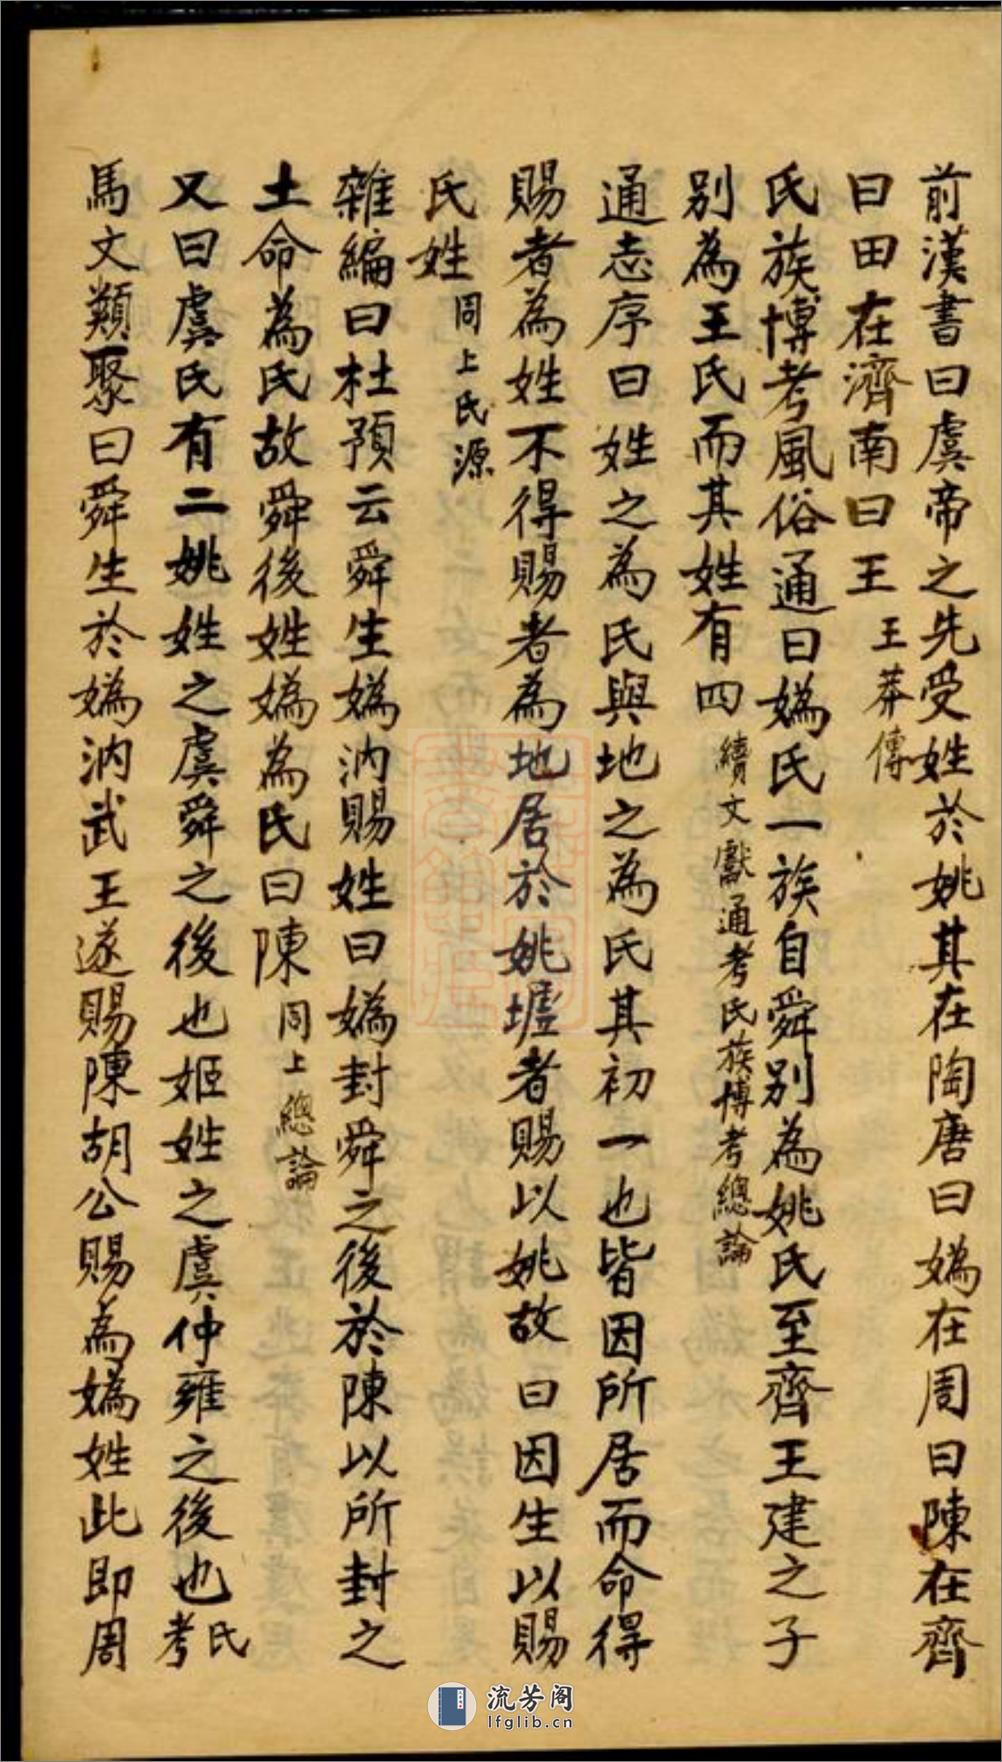 前漢書曰虞帝之先受姓於姚其在陶唐曰媯在周曰陳在齊
曰田在濟南曰王王莽傳
氏族博考風俗通曰媯氏一族自舜別為姚氏至齊王建之子
別為王氏而其姓有四續文獻通考氏族博考總論
通志序曰姓之為氏與地之為氏其初一也皆因所居而命得
賜者為姓不得賜者為地居於姚墟者賜以姚故曰因生以賜
氏姓同上氏源
雜編曰杜預云舜生媯汭賜姓曰媯封舜之後於陳以所封之
土命為氏故舜後姓媯為氏曰陳同上總論
又曰虞氏有二姚姓之虞舜之後也姬姓之虞仲雍之後也氏考
馬文類聚曰舜生於媯汭武王遂賜陳胡公賜為媯姓此即周
流芳阁
lfglib.cn